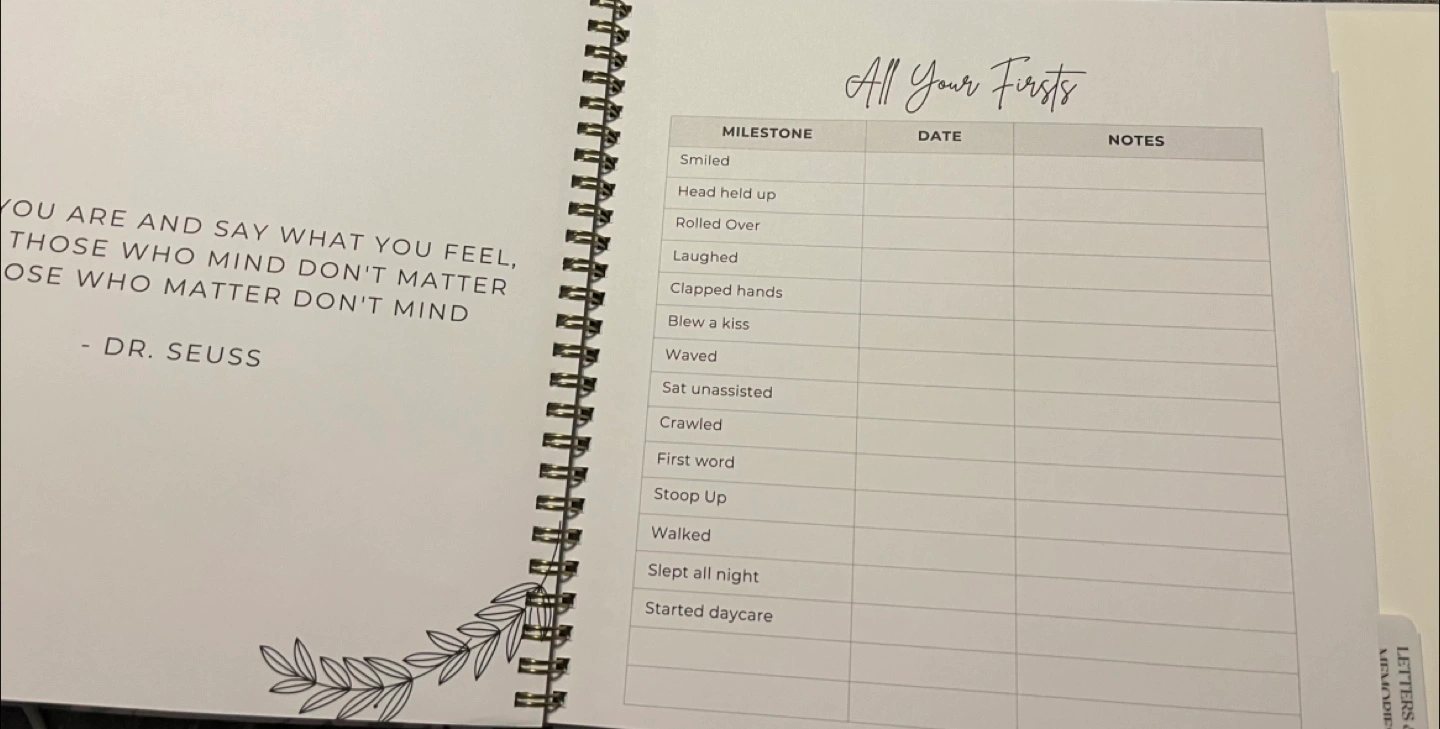 YOU ARE AND SAY WHAT YOU FEEL,
THOSE WHO MIND DON'T MATTER
WHO MATTER DON'T MIND
- DR. SEUSS
All Your Firsts
MILESTONE DATE NOTES
Smiled
Head held up
Rolled Over
Laughed
Clapped hands
Blew a kiss
Waved
Sat unassisted
Crawled
First word
Stoop Up
Walked
Slept all night
Started daycare
LETTERS &